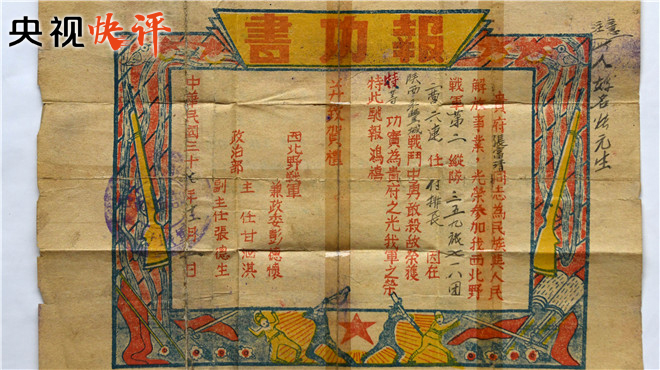 央视快评
報功書
貴府張富清同志為民族與人民
解放事業，光榮參加我西北野
戰軍第二縱隊三五九旅七一八團
二營六連任付排長。因在
陝西永豐城戰鬥中勇敢殺敵榮獲
特等功實為貴府之光我軍之榮
特此馳報鴻禧
並致賀禮
西北野戰軍
兼政委彭德懷
政治部
主任甘泗淇
副主任張德生
中華民國三十七年十二月日